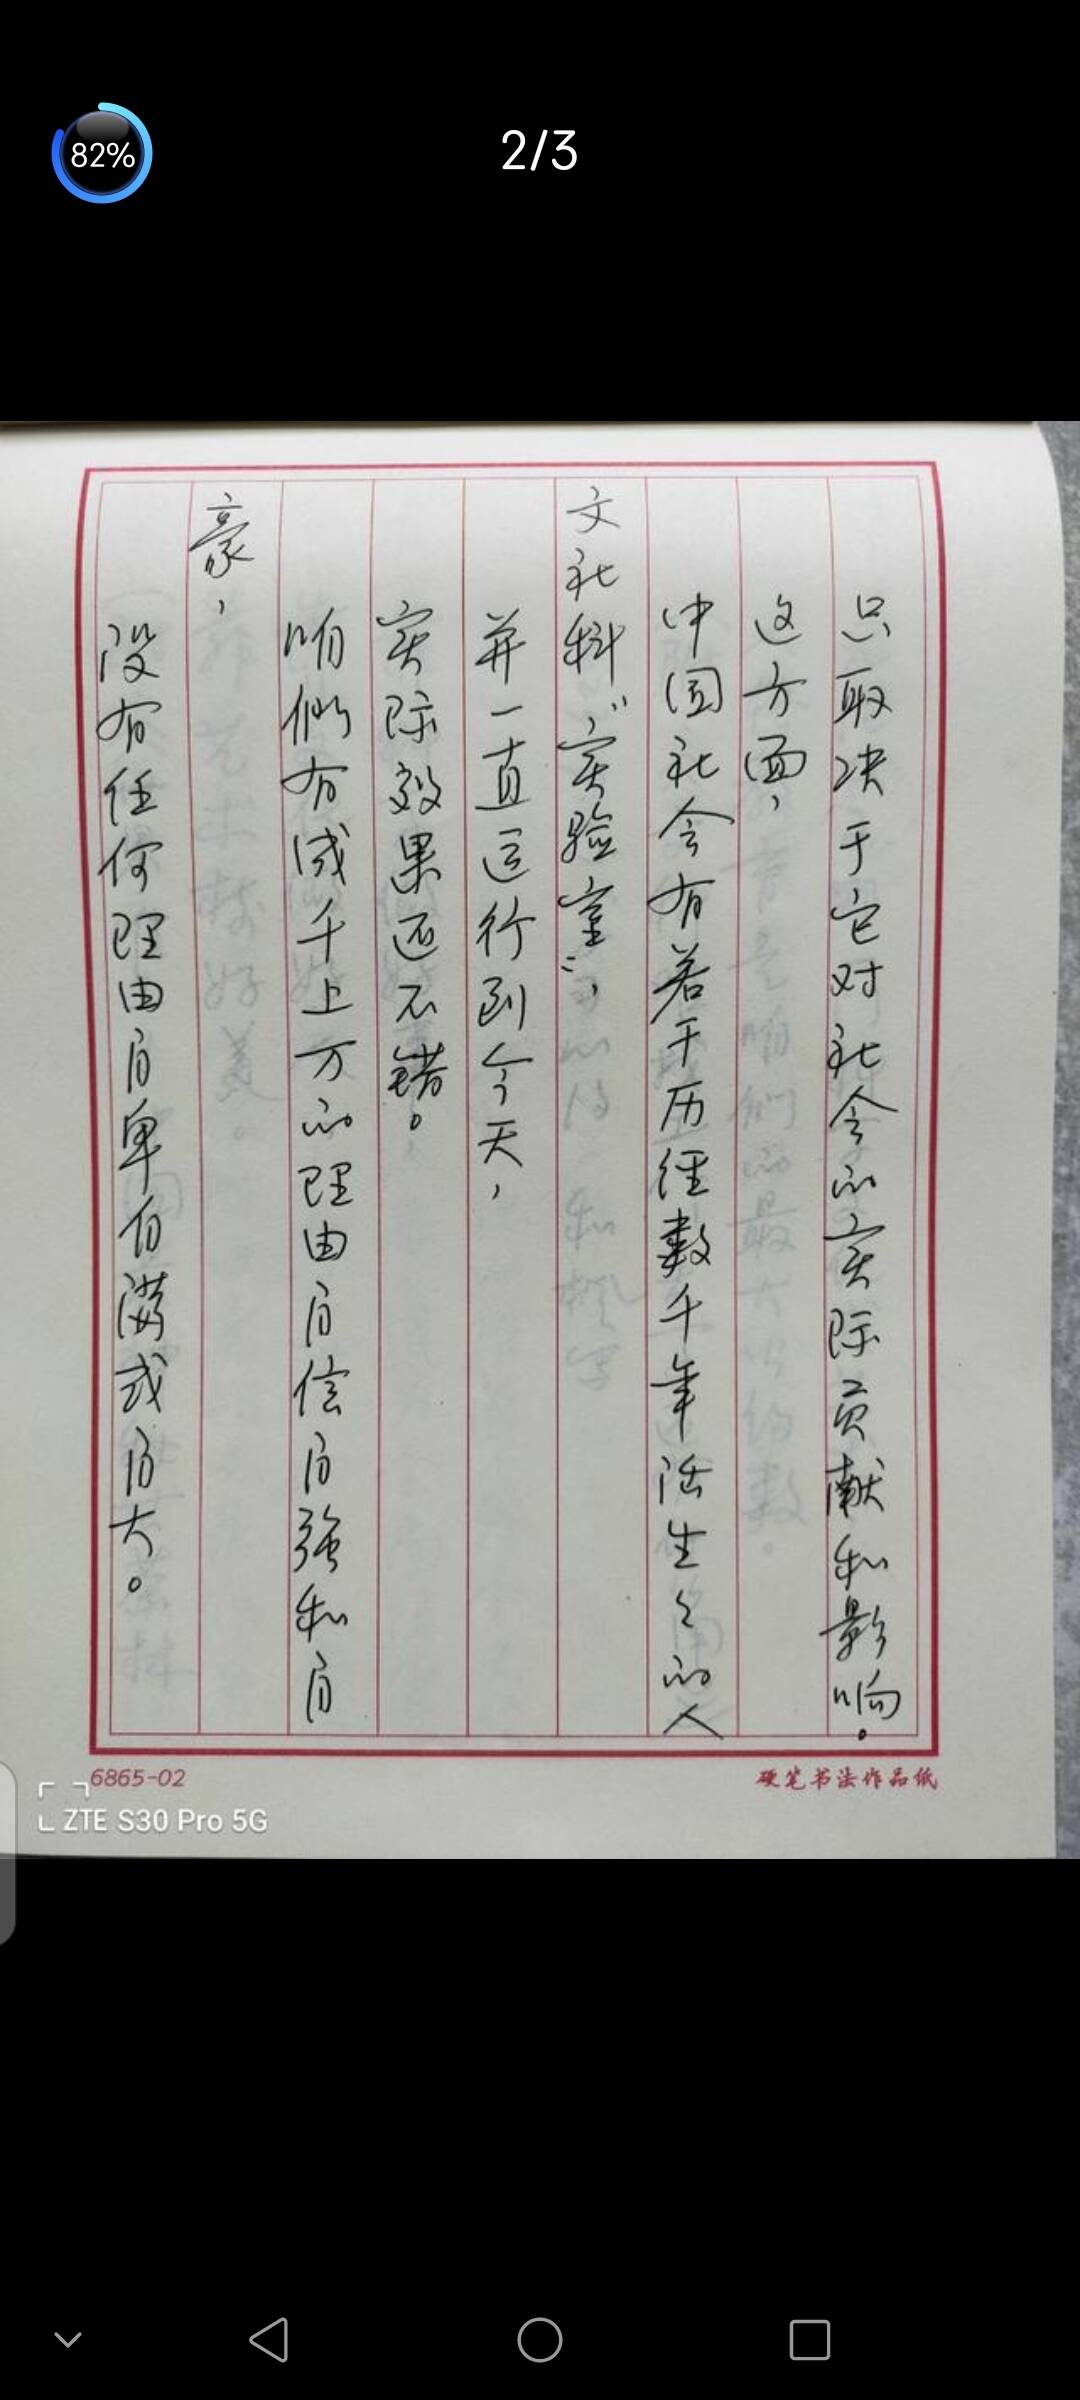 82%
2/3
只取决于它对社会的实际贡献和影响。
这方面，
中国社会有若干历经数千年活生々的人
文社科“实验室”，
并一直运行到今天，
实际效果还不错。
咱們有成千上万的理由自信自强和自
豪，
没有任何理由自卑自满或自大。
6865-02
硬笔书法作品纸
ZTE S30 Pro 5G